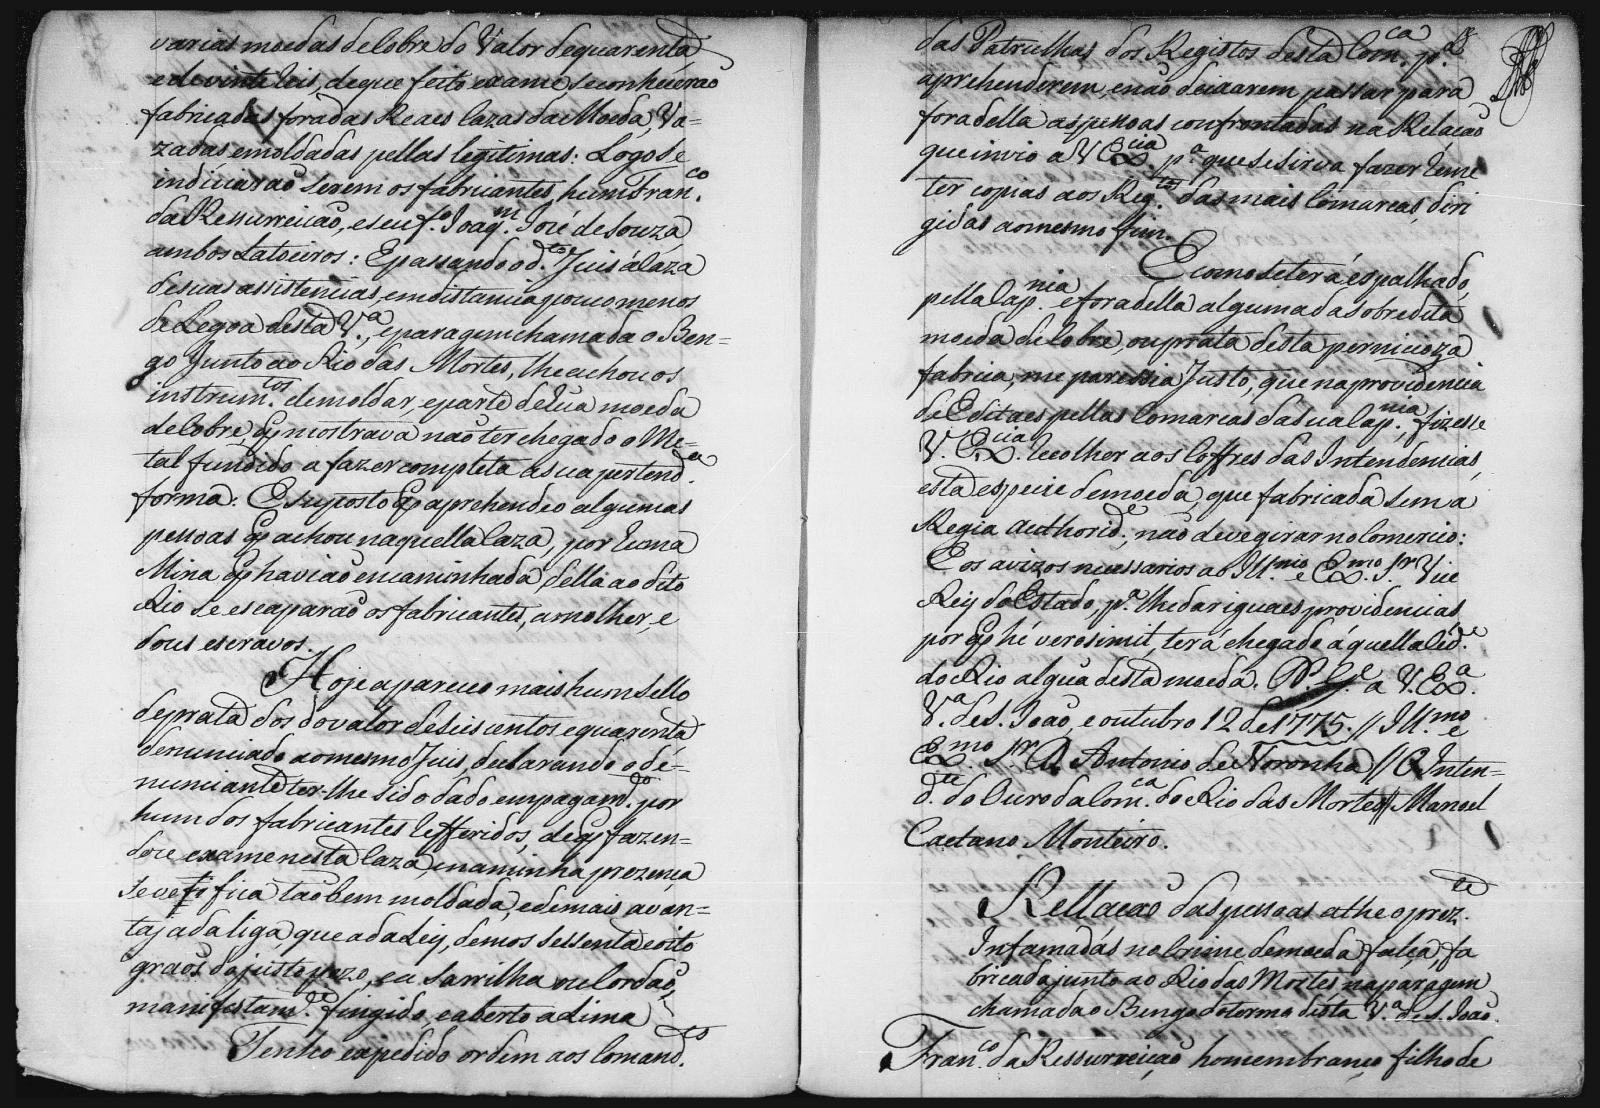 varias moedas de Cobre do Valor de quarenta
e de vinte reis, de que feito exame se conhecerao
fabricadas fora das Reaes Cazas da Moeda, Va=
zadas e moldadas pellas legitimas: Logo se
indiciarao serem os fabricantes, hum Fran.co
da Ressurreicao, e seu f.o Joaq.m José de Souza,
ambos Latoeiros: E passando o d.to Juis á Caza
de suas assistencias, em distancia pouco menos
de Legoa desta V.a, e paragem chamada o Ben=
go Junto ao Rio das Mortes, lhe achou os
instrum.tos de moldar, e parte de hũa moeda
de Cobre, q̃ mostrava nao ter chegado o Me=
tal fundido a fazer completa a sua pertend.a
forma: E suposto q̃ aprehendeo algumas
pessoas q̃ achou naquella Caza, por huma
Mina q̃ haviao encaminhada della ao dito
Rio se escaparao os fabricantes, a molher, e
dous escravos.
Hoje apareceo mais hum sello
de prata dos do valor de seis centos e quarenta
denunciado ao mesmo Juis, declarando o de=
nunciante ter-lhe sido dado em pagam.to por
hum dos fabricantes refferidos, de q̃ fazen=
do se exame nesta Caza, e na minha prezença
se vefifica tao bem moldada, e de mais avan=
tajada liga, que a da Ley, de mos sessenta e oito
graos do justo pezo, e a sarrilha ou Cordao,
manifestam.te fingido, e aberto a Lima
Tenho expedido ordem aos Comand.tes
das Patrulhas dos Registos desta Com.ca p.a
aprehenderem, e nao deixarem passar para
fora della as pessoas confrontadas na Relacao
que invio a V Ex.cia p.a que se sirva fazer reme
ter copias aos Reg.tos das mais Comarcas, diri
gidas ao mesmo fim.
E como se terá espalhado,
pella Cap.nia e fora della alguma da sobredita
moeda de Cobre, ou prata desta pernicioza
fabrica, me paressia Justo, que na providencia
de Editaes pellas Comarcas da sua Cap.nia, fizesse
V. Ex.cia recolher aos Coffres das Intendencias,
esta especie de moeda, que fabricada sem a
Regia authorid.e, nao deve girar no Comercio:
E os avizos necessarios ao Ill.mo e Ex.mo S.r Vice
Rey do Estado, p.a lhe dar iguaes providencias,
por q̃ hé verosimil, terá chegado áquella Cid.e
do Rio algũa desta moeda. D.s G.e a V. Ex.a
V.a de S. Joao, e outubro 12 de 1775. // Ill.mo e
Ex.mo S.r D. Antonio de Noronha // O Inten=
d.te do Ouro da Com.ca do Rio das Mortes // Manoel
Caetano Monteiro.
Rellacao das pessoas athe o prez.te
Infamadas no Crime de moeda falça fa
bricada junto ao Rio das Mortes na paragem
chamada o Bengo do termo desta V.a de S. Joao.
Fran.co da Ressurreiçao homem branco, filho de